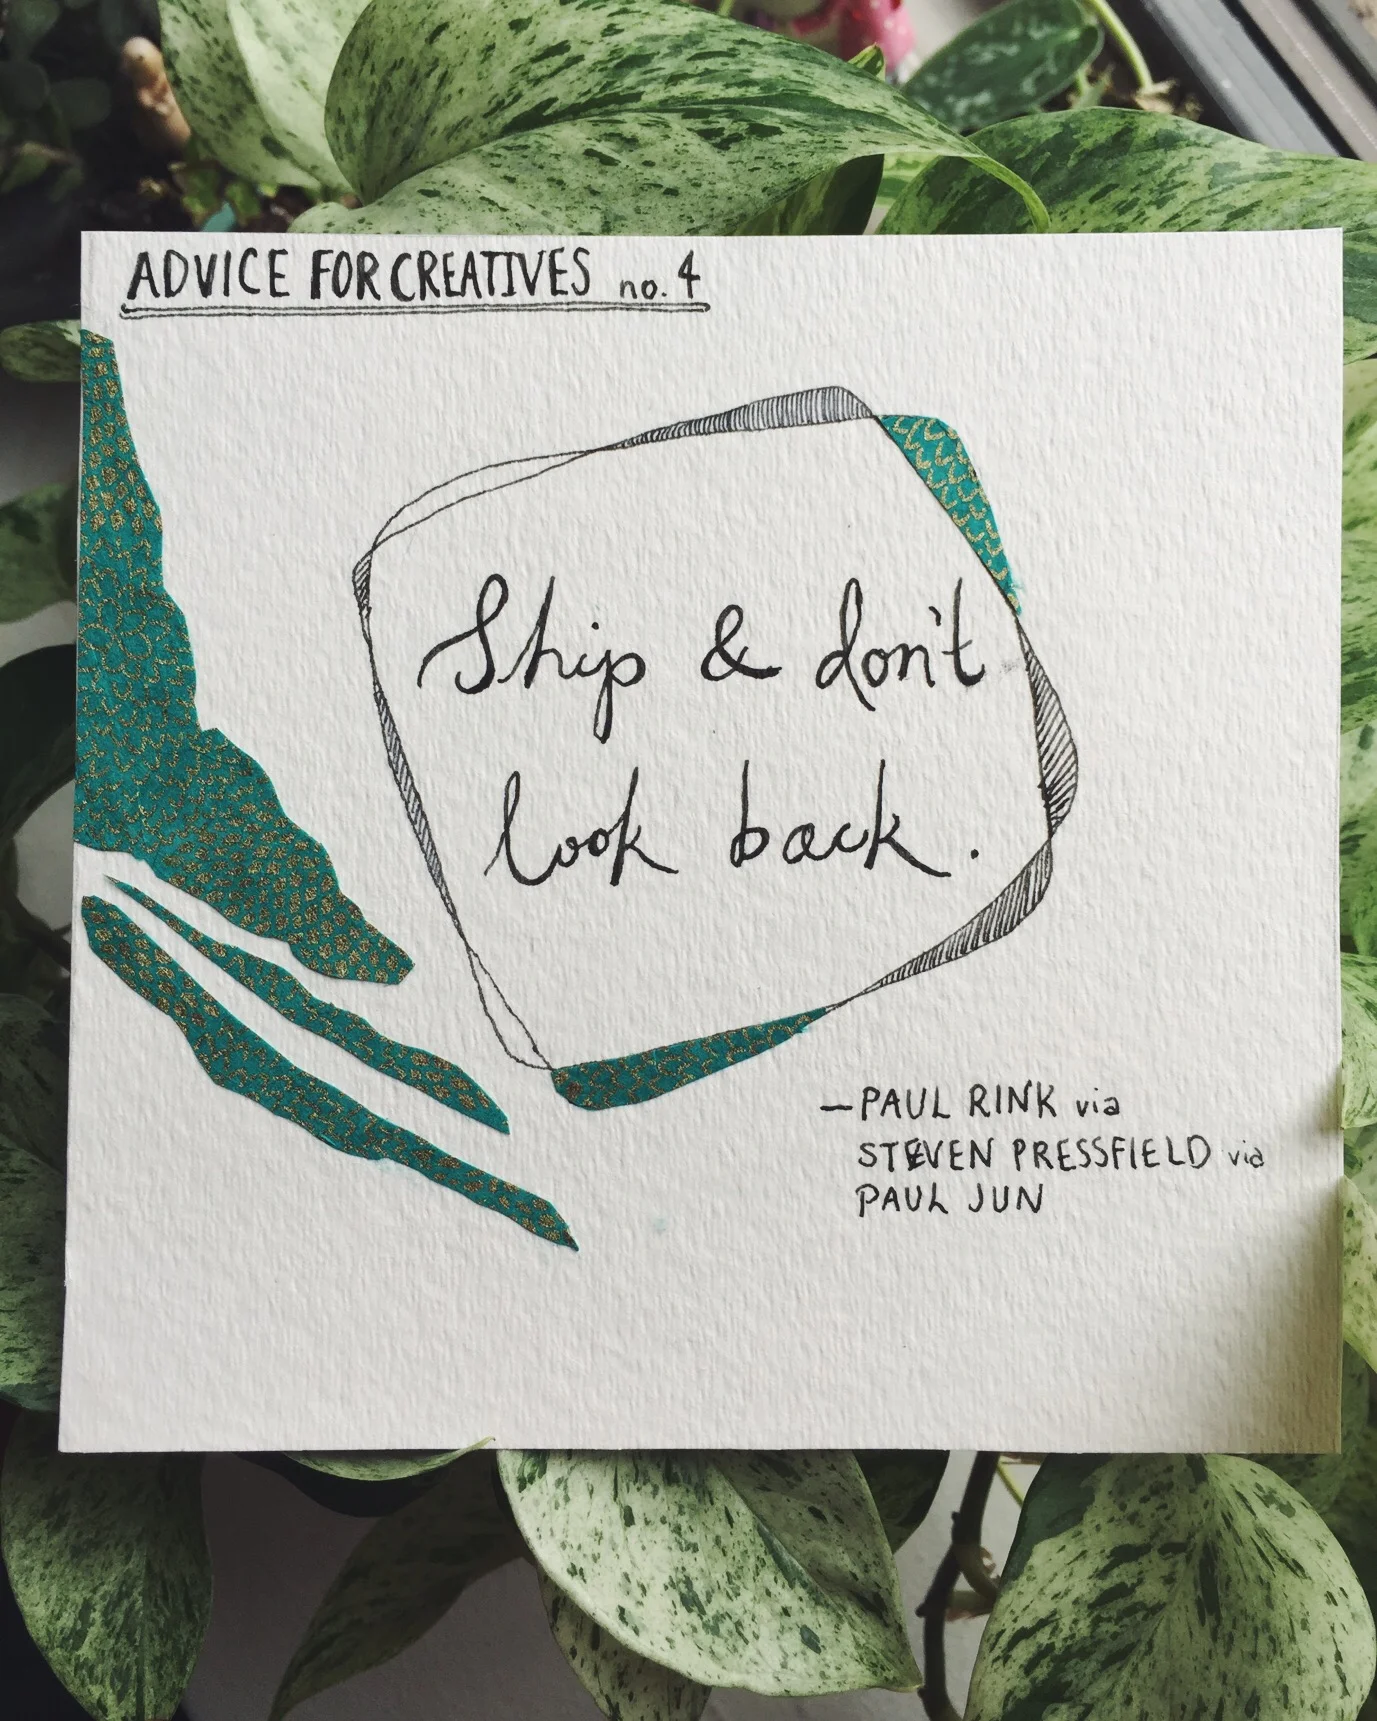 ADVICE FOR CREATIVES no. 4
Ship & don't
look back.
—PAUL RINK via
STEVEN PRESSFIELD via
PAUL JUN